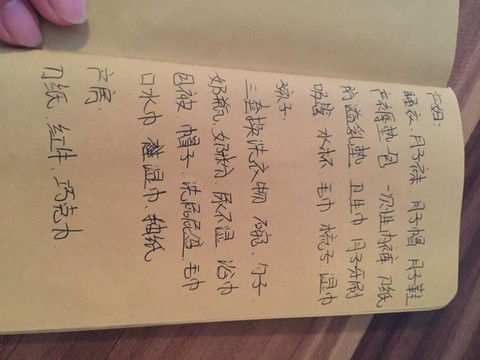 产妇:
睡衣. 月子袜. 月子帽 月子鞋
产褥垫一包 一次性内裤 刀纸
防溢乳垫. 卫生巾 月子牙刷
吸管 水杯. 毛巾 梳子 湿巾
孩子:
三套换洗衣物 碗. 勺子.
奶瓶. 奶粉. 尿不湿 浴巾
包被. 帽子. 洗屁屁盆. 毛巾
口水巾 湿巾. 抽纸
产房:
刀纸. 红牛. 巧克力